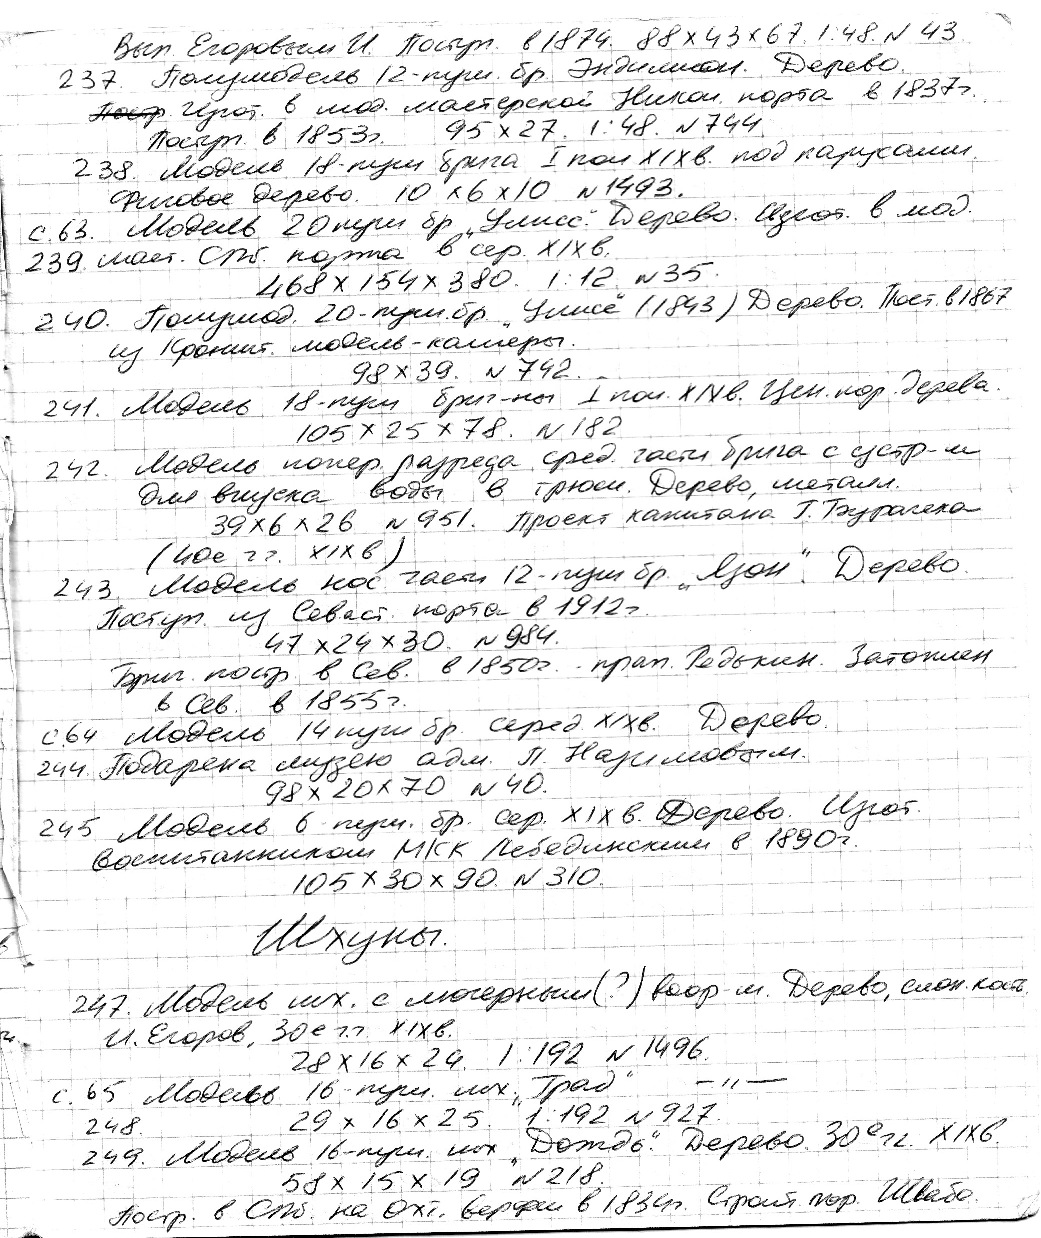 Вып. Егоровым И. Поступ. в 1874. 88×43×67. 1:48. N 43
237. Полумодель 12-пуш. бр. Эндимион. Дерево.
Постр Изгот. в мод. мастерской Никол. порта в 1837г.
Поступ. в 1853г. 95×27. 1:48. N 744.
238. Модель 18-пуш брига I пол XIXв. под парусами.
Фиговое дерево. 10×6×10 N 1493.
с.63. Модель 20 пуш бр „Улисс". Дерево. Изгот. в мод.
239. маст. СПб. порта в сер. XIXв.
468×154×380. 1:12. N 35.
240. Полумод. 20-пуш. бр. „Улисс" (1843) Дерево. Пост. в 1867
из Кроншт. модель-камеры.
98×39. N 742.
241. Модель 18-пуш бриг-ны I пол. XIXв. Цен. пор. дерева.
105×25×78. N 182
242. Модель попер. разреза сред. части брига с устр-м
для впуска воды в трюм. Дерево, металл.
39×6×26 N 951. Проект капитана Г. Бурачека
(40е гг. XIXв)
243. Модель нос части 12-пуш бр. „Язон". Дерево.
Поступ. из Севаст. порта в 1912г.
47×24×30. N 984.
Бриг. постр. в Сев. в 1850г. - прап. Редькин. Затоплен
в Сев. в 1855г.
с.64 Модель 14 пуш бр. серед XIXв. Дерево.
244. Подарена музею адм. П. Назимовым.
98×20×70 N 40.
245 Модель 6 пуш. бр. сер. XIXв. Дерево. Изгот.
воспитанником МКК Лебединским в 1890г.
105×30×90. N 310.
Шхуны.
247. Модель шх. с люгерным (?) воор-м. Дерево, слон. кость.
И. Егоров, 30е гг. XIXв.
28×16×24. 1:192 N 1496.
с.65 Модель 16-пуш. шх. „Град" —„—
248. 29×16×25. 1:192 N 927.
249. Модель 16-пуш. шх „Дождь". Дерево. 30е гг. XIXв.
58×15×19 N 218.
Постр. в СПб. на Охт. верфи в 1834г. Строит пор. Швабе.